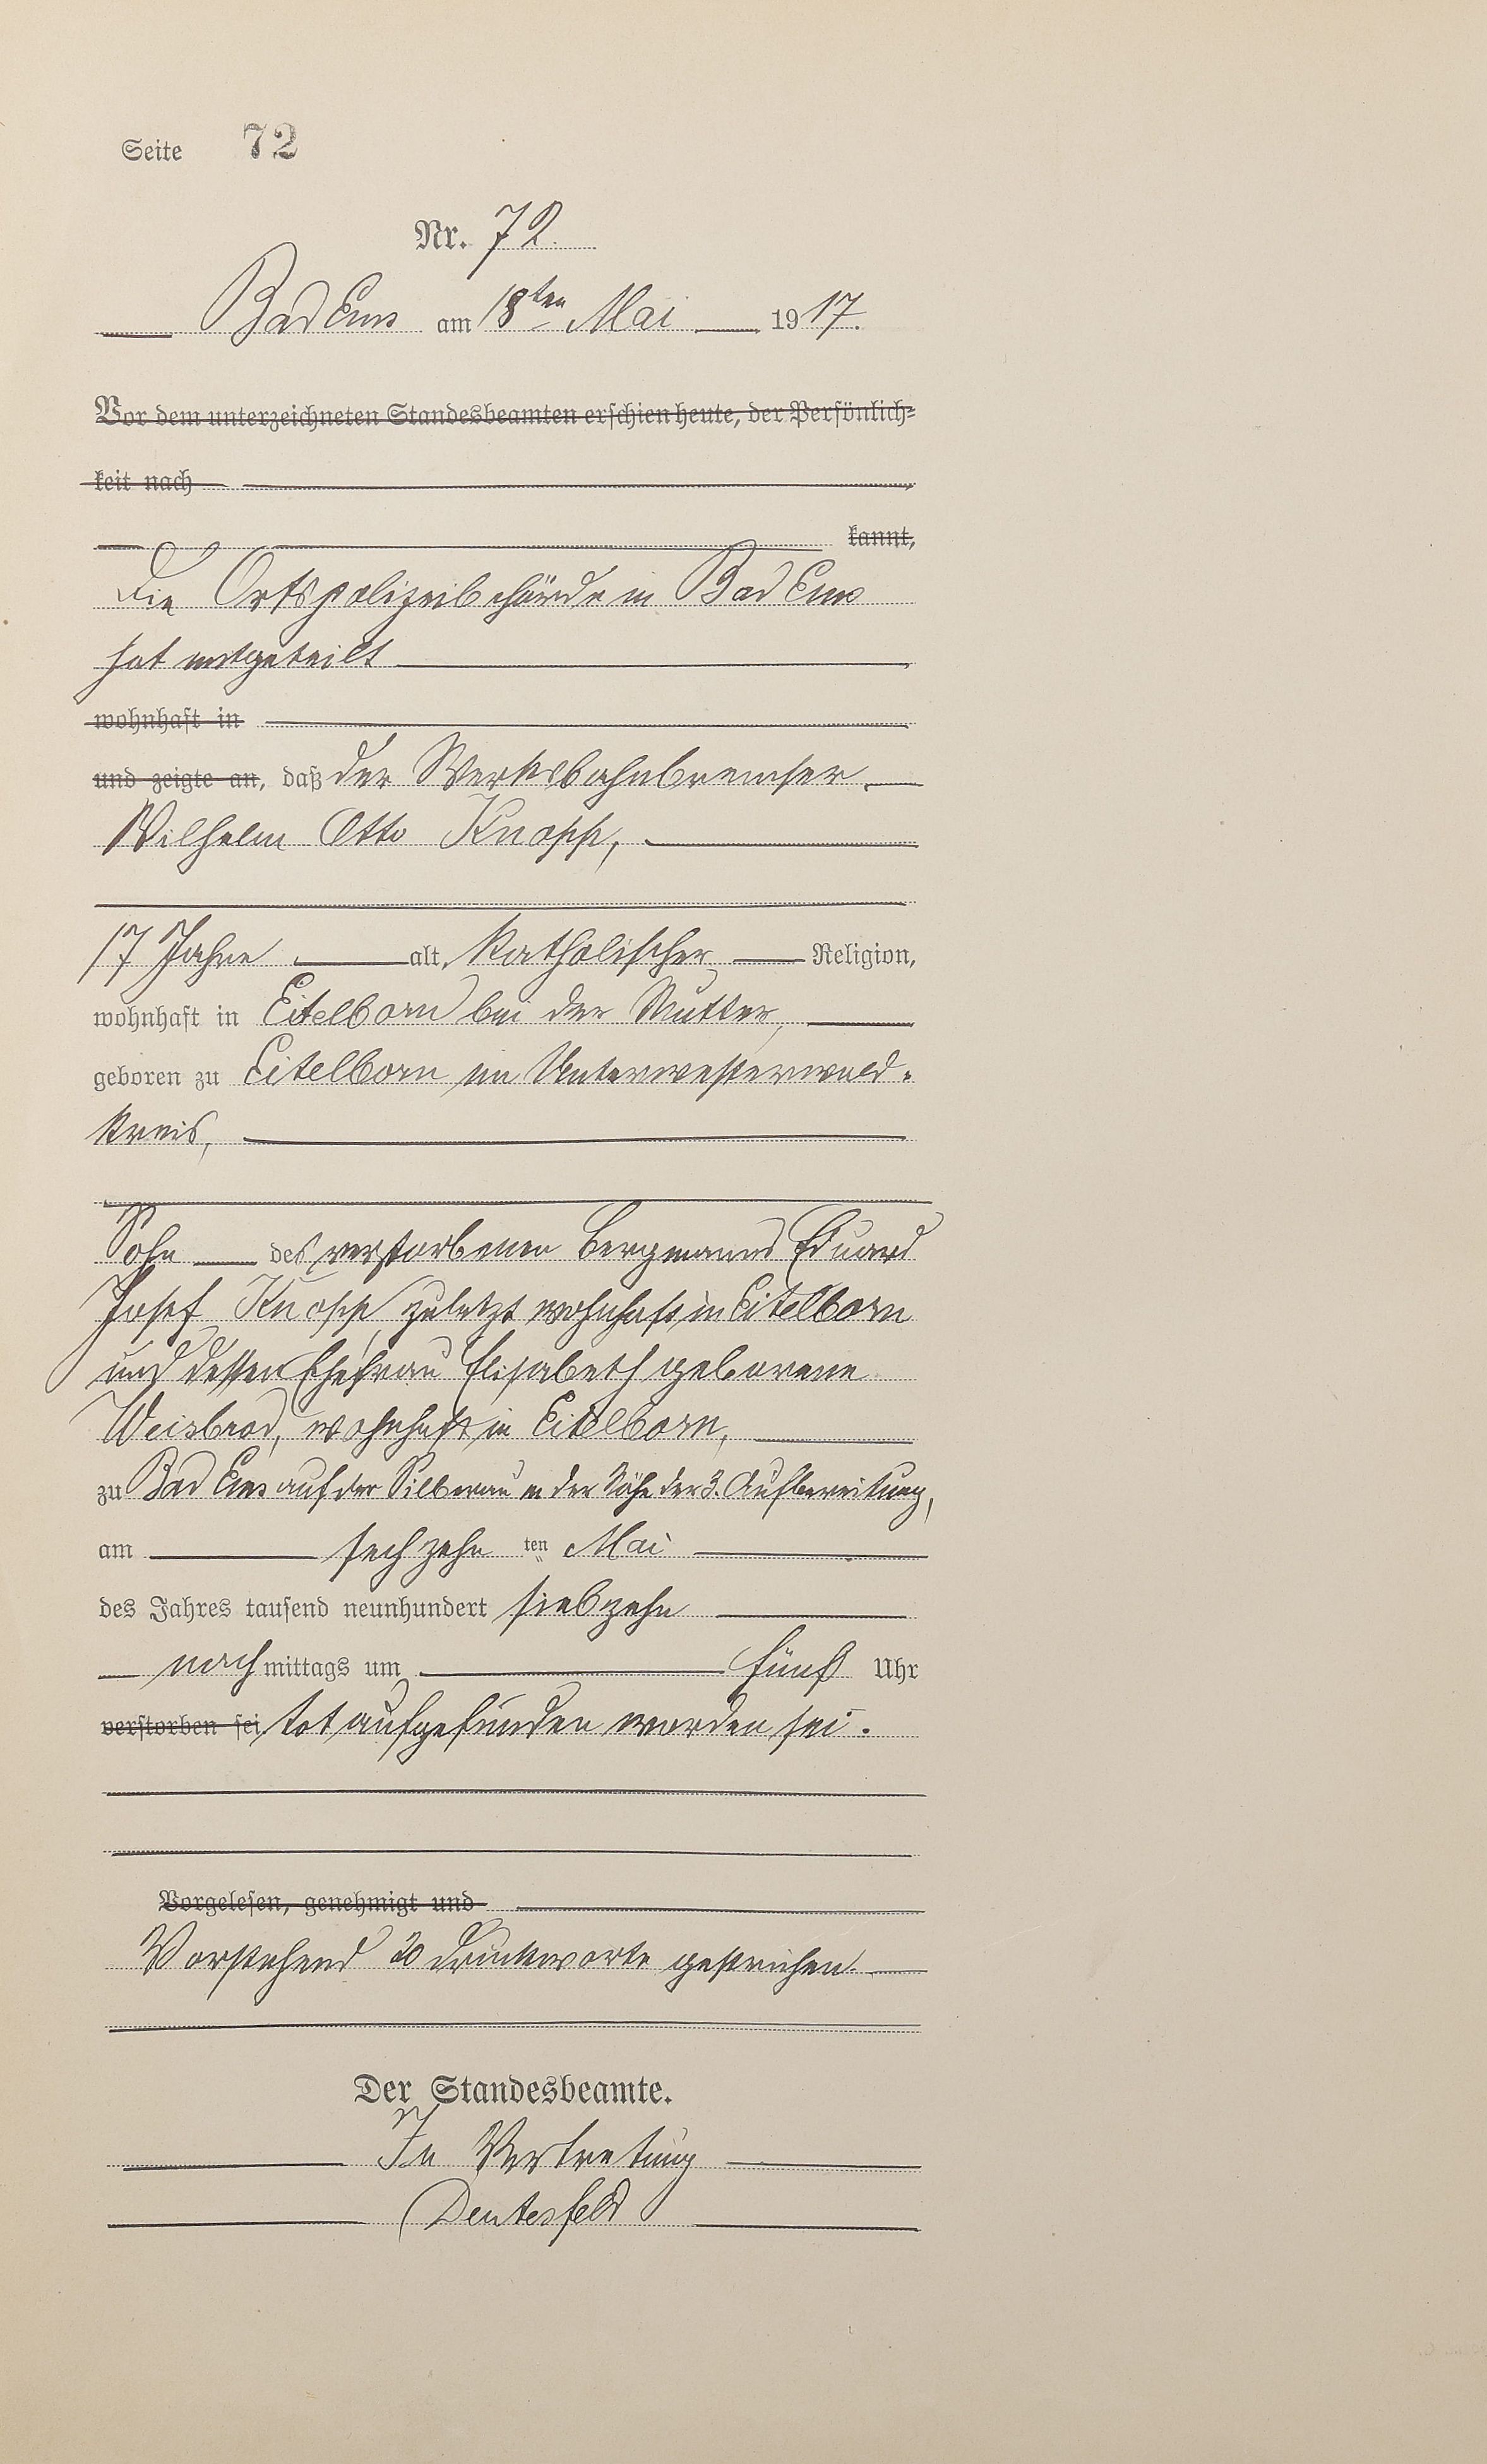 Seite 72
Nr. 72.
Bad Ems am 18ten Mai 1917.
Vor dem unterzeichneten Standesbeamten erschien heute, der Persönlich-
keit nach
kannt,
Die Ortspolizeibehörde in Bad Ems
hat mitgeteilt
wohnhaft in
und zeigte an, daß der Werksbahnbremser
Wilhelm Otto Knopp,
17 Jahre alt, katholischer Religion,
wohnhaft in Eitelborn bei der Mutter,
geboren zu Eitelborn im Unterwesterwald-
kreis,
Sohn des verstorbenen Bergmanns Eduard
Josef Knopp, zuletzt wohnhaft in Eitelborn
und dessen Ehefrau Elisabeth geborene
Weisbrod, wohnhaft in Eitelborn,
zu Bad Ems auf der Silberau in der Nähe der 3. Aufbereitung,
am sechzehn ten Mai
des Jahres tausend neunhundert siebzehn
nachmittags um fünf Uhr
verstorben sei tot aufgefunden worden sei.
Vorgelesen, genehmigt und
Vorstehend 20 Druckworte gestrichen.
Der Standesbeamte.
In Vertretung